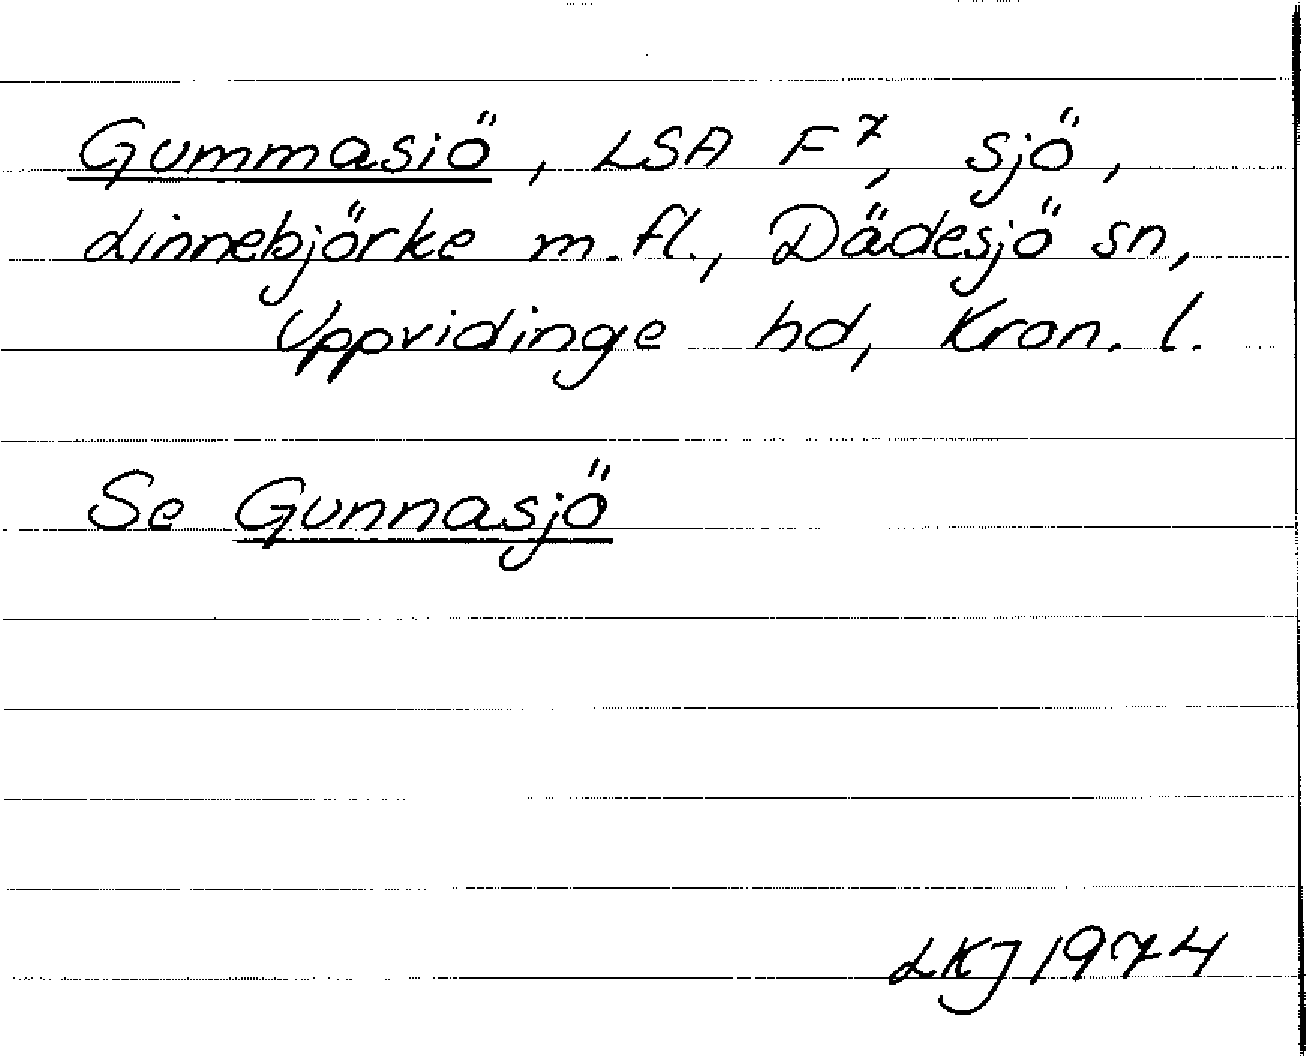 Gummasiö, LSA F⁷, sjö,
Linnebjörke m.fl., Dädesjö sn,
Uppvidinge hd, Kron. l.
Se Gunnasjö
LKJ 1974